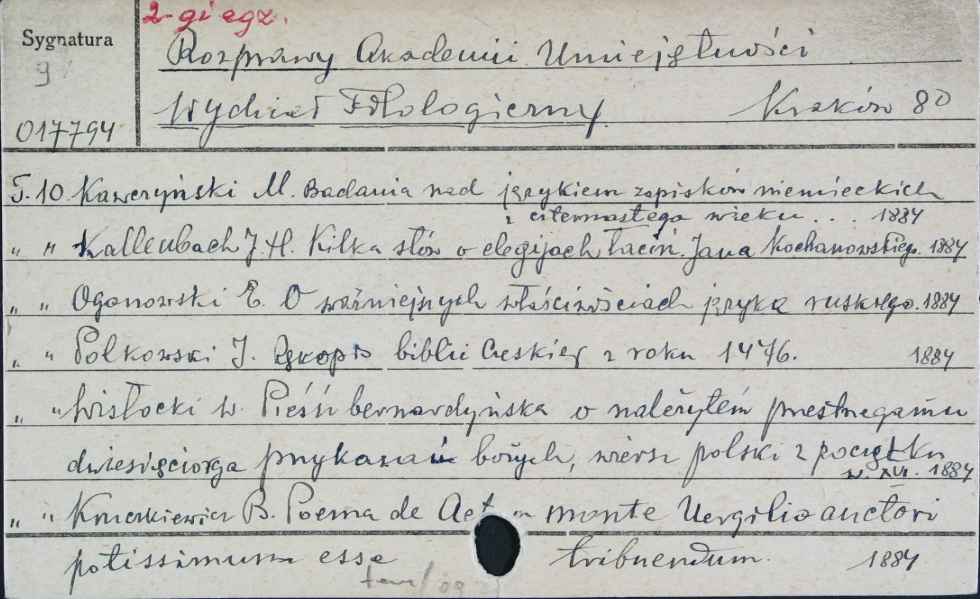 2-gi egz.
Sygnatura
9
017794
Rozprawy Akademii Umiejętności
Wydział Filologiczny. Kraków 8o
T. 10 Kawczyński M. Badania nad językiem zapisków niemieckich
z czternastego wieku . . . 1884
" " Kallenbach J. H. Kilka słów o elegijach łaciń. Jana Kochanowskiego. 1884
" " Ogonowski E. O ważniejszych właściwościach języka ruskiego. 1884
" " Polkowski J. Rękopis biblii Czeskiej z roku 1476. 1884
" " Wisłocki W. Pieśń bernardyńska o należytem przestrzeganiu
dziesięciorga przykazań bożych, wiersz polski z początku
w. XVI. 1884
" " Kruczkiewicz B. Poema de Aet monte Vergilio auctori
potissimum esse tribuendum. 1884